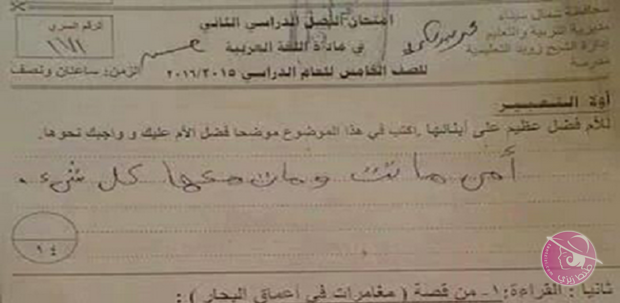 محافظة شمال سيناء
مديرية التربية والتعليم
إدارة الشيخ زويد التعليمية
مدرسة
امتحان الفصل الدراسي الثاني
في مادة اللغة العربية
للصف الخامس للعام الدراسي ٢٠١٦/٢٠١٥
الرقم السرى
الزمن: ساعتان ونصف
أولا التعبير:
للأم فضل عظيم على أبنائها. اكتب في هذا الموضوع موضحا فضل الأم عليك و واجبك نحوها.
أمى ماتت ومات معها كل شىء.
١٤
ثانيا : القراءة: ١- من قصة ( مغامرات في اعماق البحار ) :